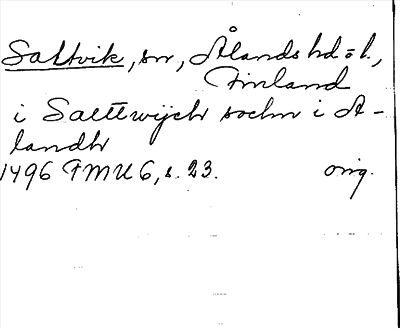 Saltvik, sn, Ålands hd o l.,
Finland
i Saltwijch sochn i A-
landh
1496 FMU 6, s. 23. orig.